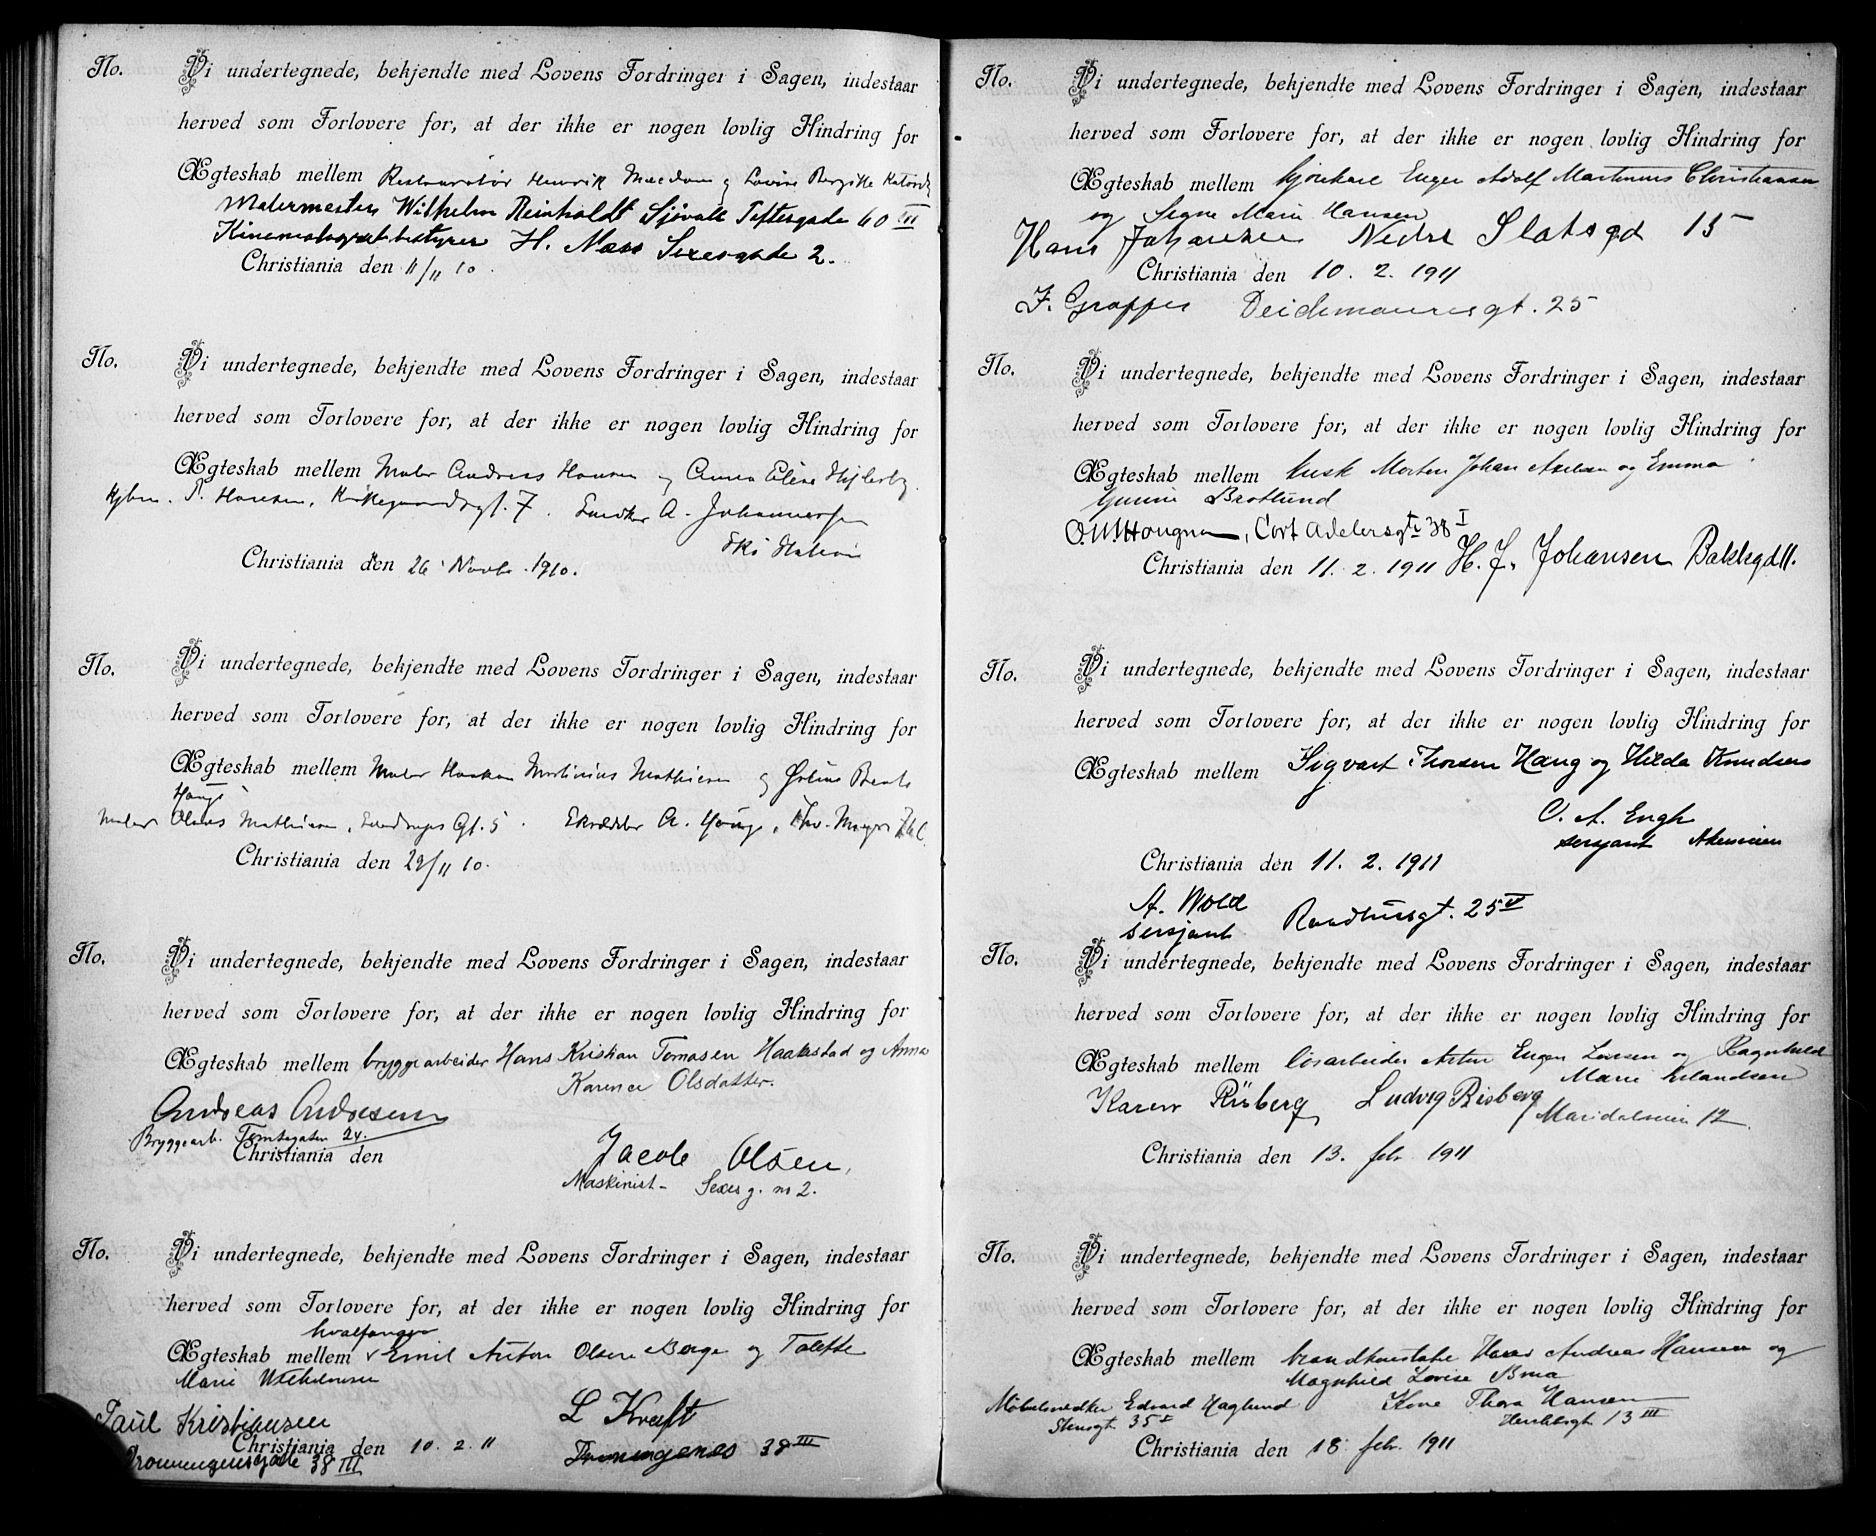 No. Vi undertegnede, bekjendte med Lovens Fordringer i Sagen, indestaar
herved som Forlovere for, at der ikke er nogen lovlig Hindring for
Ægteskab mellem Restauratør Henrik og Lovise Birgitte
Malermester Wilhelm Reinholdt Sjövall Toftesgade 60 III
Kinematografbestyrer H. Moss Sexesgade 2.
Christiania den 11/11 10.
No. Vi undertegnede, bekjendte med Lovens Fordringer i Sagen, indestaar
herved som Forlovere for, at der ikke er nogen lovlig Hindring for
Ægteskab mellem Maler Andreas Hansen og Anna Eline
P. Hansen, Kirkegaardsgt. 7. A. Johannessen
Ski Station
Christiania den 26 Novbr. 1910.
No. Vi undertegnede, bekjendte med Lovens Fordringer i Sagen, indestaar
herved som Forlovere for, at der ikke er nogen lovlig Hindring for
Ægteskab mellem Maler Haakon Martinius Mathisen og Ørline Berntine
Hauge
Maler Olaves Mathisen, Gt. 5. Skrædder A. Hauge, Thv. Meyers
Christiania den 29/11 10.
No. Vi undertegnede, bekjendte med Lovens Fordringer i Sagen, indestaar
herved som Forlovere for, at der ikke er nogen lovlig Hindring for
Ægteskab mellem bryggearbeider Hans Kristian Tomasen Haakestad og Anna
Karence Olsdatter.
Andreas Andresen
Bryggearb. Tomtegaten 24.
Christiania den
Jacob Olsen,
Maskinist - Sexesg. no 2.
No. Vi undertegnede, bekjendte med Lovens Fordringer i Sagen, indestaar
herved som Forlovere for, at der ikke er nogen lovlig Hindring for
hvalfanger
Ægteskab mellem Emil Anton Olsen Berge og Tolette
Marie Wilhelmsen
Paul Kristiansen L Kraft
Christiania den 10. 2. 11
38 III 38 III
No. Vi undertegnede, bekjendte med Lovens Fordringer i Sagen, indestaar
herved som Forlovere for, at der ikke er nogen lovlig Hindring for
Ægteskab mellem kjørekarl Enger Adolf Martinius Christiansen
og Signe Marie Hansen
Hans Johansen Nedre Slotsgd 15
Christiania den 10. 2. 1911
F. Grapper Deichmannsgt. 25
No. Vi undertegnede, bekjendte med Lovens Fordringer i Sagen, indestaar
herved som Forlovere for, at der ikke er nogen lovlig Hindring for
Ægteskab mellem kusk Morten Johan Axelsen og Emma
Gunine Brotlund
O. M. Haugna, Cort Adelersgt 38 I
Christiania den 11. 2. 1911 H. J. Johansen Bakkegd 11.
No. Vi undertegnede, bekjendte med Lovens Fordringer i Sagen, indestaar
herved som Forlovere for, at der ikke er nogen lovlig Hindring for
Ægteskab mellem Sigvart Thorsen Haug og Hilda Knudsen
O. A. Engh
sersjant Akersveien
Christiania den 11. 2. 1911
A. Wold
sersjant Raadhusgt. 25 V
No. Vi undertegnede, bekjendte med Lovens Fordringer i Sagen, indestaar
herved som Forlovere for, at der ikke er nogen lovlig Hindring for
Ægteskab mellem løsarbeider Eugen Larsen og Ragnhild
Marie Erlandsen
Karen Risberg Ludvig Risberg
Maridalsveien 12
Christiania den 13. febr. 1911
No. Vi undertegnede, bekjendte med Lovens Fordringer i Sagen, indestaar
herved som Forlovere for, at der ikke er nogen lovlig Hindring for
Ægteskab mellem brandkonstabel Hans Andreas Hansen og
Magnhild Lovise Bma
Møbelsnedker Edvard Haglund Kone Thora Hansen
Stensgt 35 I Herslebsgt 13 III
Christiania den 18. febr. 1911